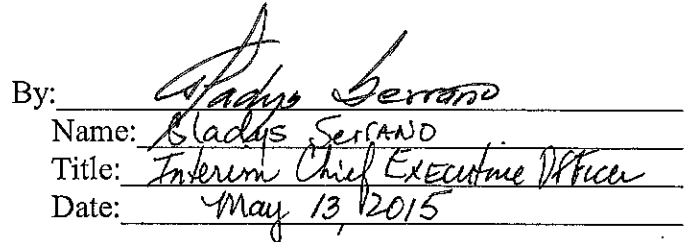 By: Gladys Serrano
Name: Gladys Serrano
Title: Interim Chief Executive Officer
Date: May 13, 2015